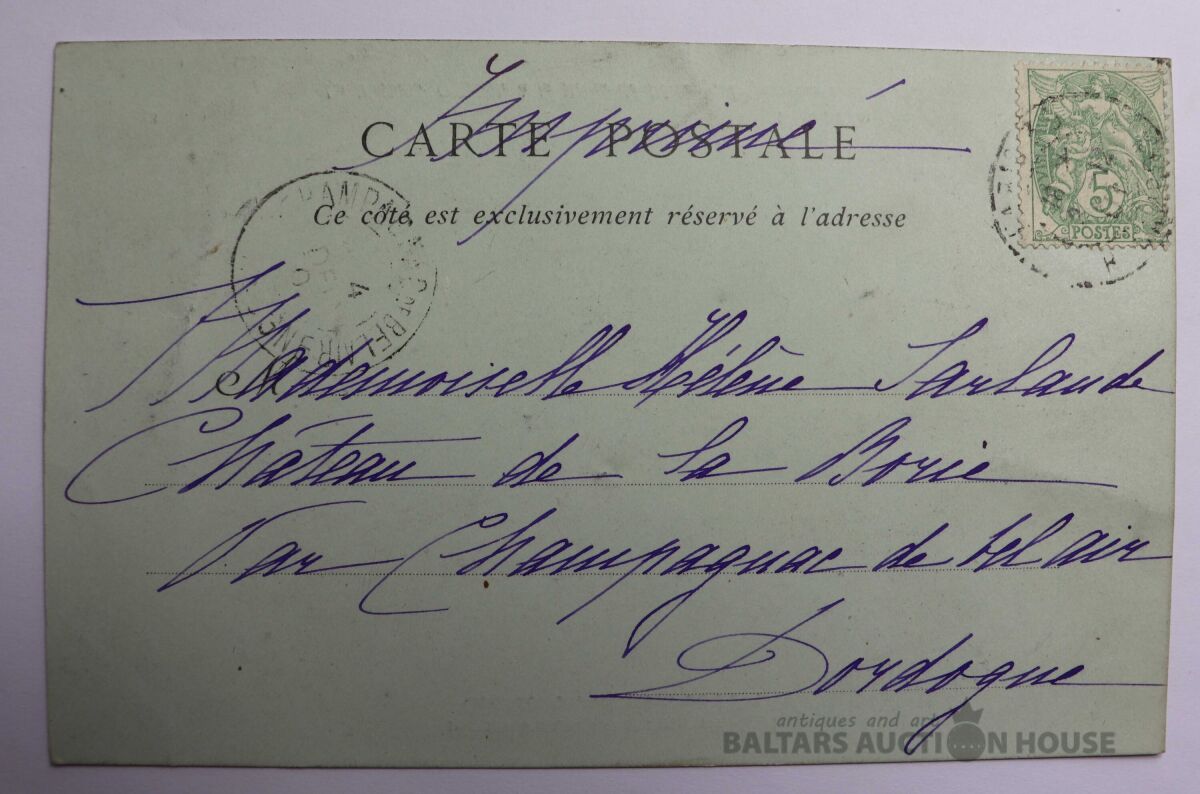 Imprimé
CARTE POSTALE
Ce côté est exclusivement réservé à l'adresse
5
POSTES
4
DEC
Mademoiselle Hélène Sarlande
Château de la Borie
Par Champagnac de bel air
Dordogne
antiques and art
BALTARS AUCTION HOUSE